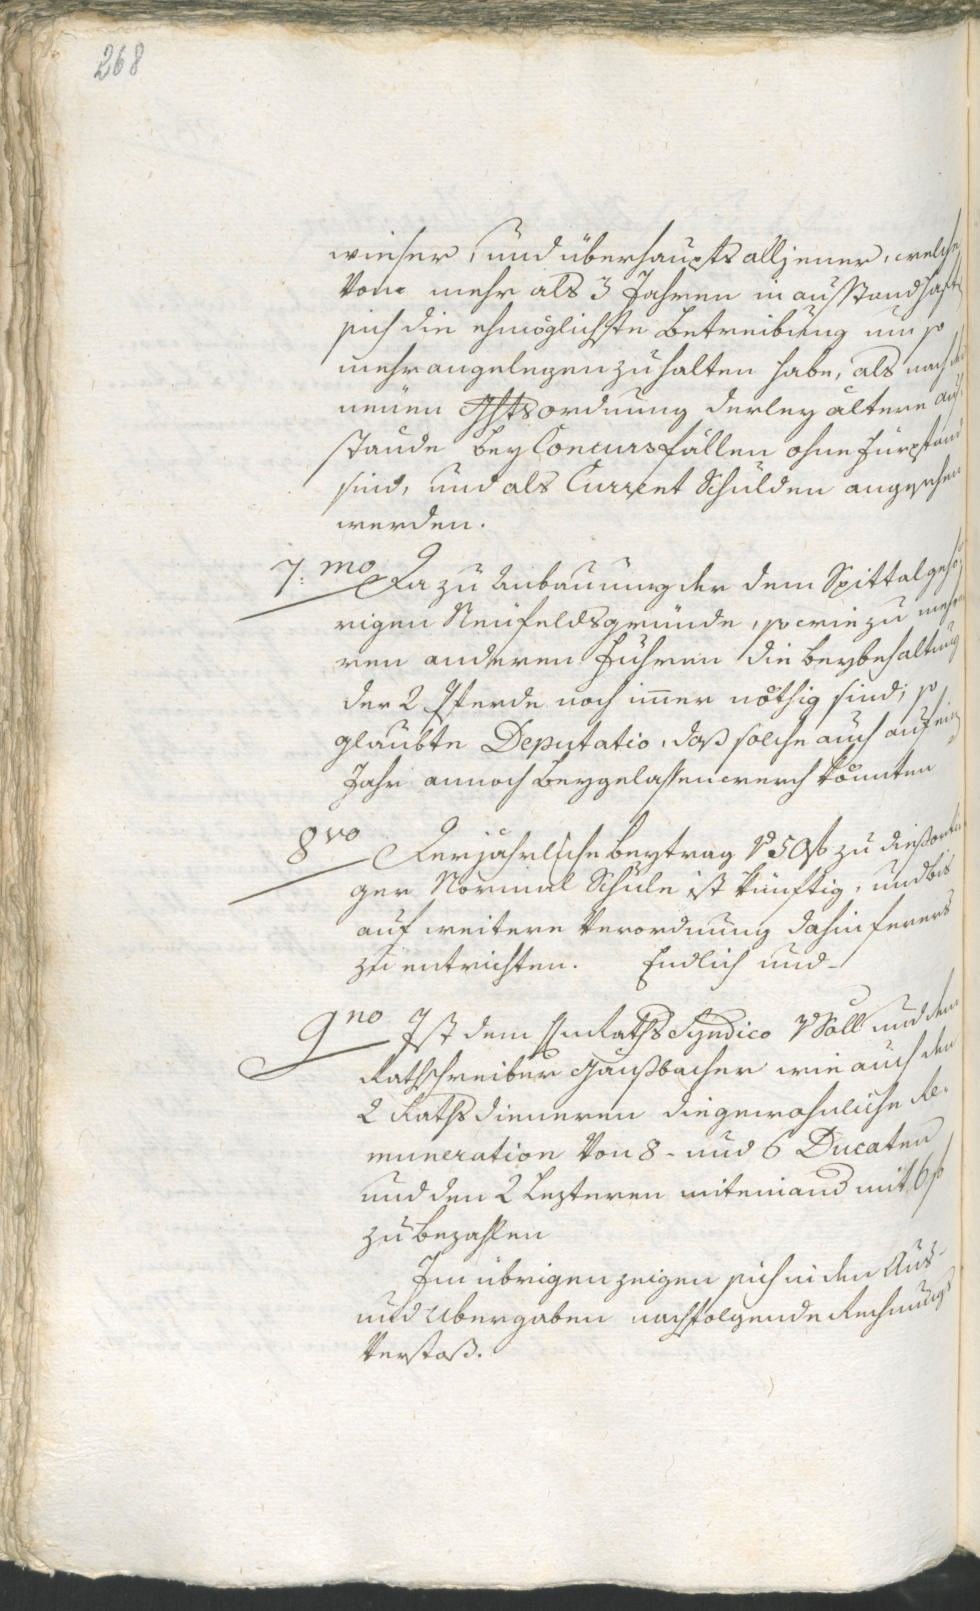 268
wieser, und überhaupts all jener, welche
Von mehr als 3 Jahren in ausstand haft
sich die ehmöglichste Betreibung um so
mehr angelegen zu halten habe, als nach der
neuen Ghtsordnung derley ältere aus¬
stände bey Concursfällen ohne Fürstand
sind, und als Current Schulden angesehen
werden.
7:mo Da zu Anbauung der dem Spittal gehö¬
rigen Neufeldsgründe, so wie zu meh¬
ren anderen Fuhren die beybehaltung
der 2 Pferde noch im̄er nöthig sind; so
glaubte Deputatio, daß solche auch auf ein
Jahr annoch beygelassen werdn könnten
8vo Der jährlche beytrag V 50 f zu diesorti
ger Normal Schule ist künftig, und bis
auf weitere Verordnung dahin ferers
zu entrichten. Endlich und
9no Ist dem H Raths Syndico V Söll und dem
Rathschreiber Gaußbacher wie auch den
2 Rathsdieneren die gewohnliche Re¬
muneration Von 8 - und 6 Ducaten
und den 2 lezteren miteinand mit 6 f
zu bezahlen
Im übrigen zeigen sich in den Aus-
und Ubergaben nachfolgende Rechnungs
Verstoß.